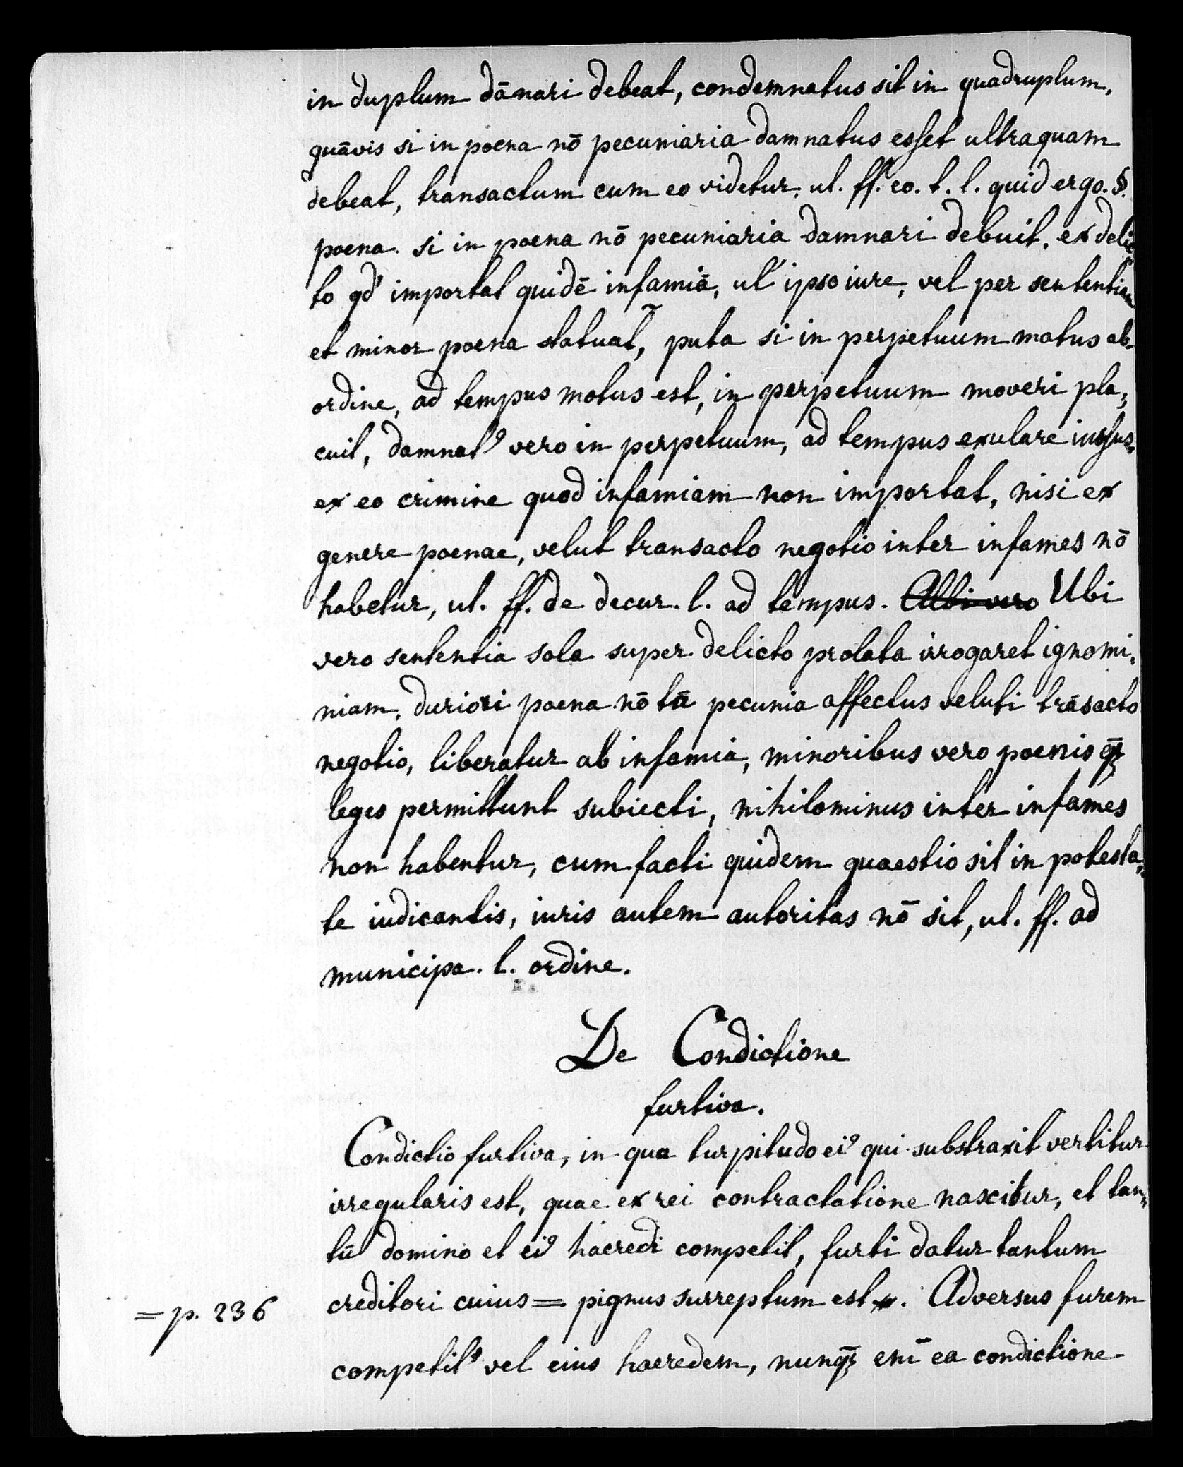 in duplum dānari debeat, condemnatus sit in quadruplum,
quāvis si in poena nō pecuniaria damnatus esset ultraquam
debeat, transactum cum eo videtur, ut. ff. eo. t. l. quid ergo. §.
poena. si in poena nō pecuniaria damnari debuit, ex delic
to qd' importat quidē infamiā, ul' ipso iure, vel per sententiam
et minor poena statuat~, puta si in perpetuum motus ab
ordine, ad tempus motus est, in perpetuum moveri pla,
cuit, damnat9 vero in perpetuum, ad tempus exulare iussus,
ex eo crimine quod infamiam non importat, nisi ex
genere poenae, velut transacto negotio inter infames nō
habetur, ut. ff. de decur. l. ad tempus. Albi vero Ubi
vero sententia sola super delicto prolata irrogaret ignomi,
niam, duriori poena nō tā pecunia affectus veluti trāsacto
negotio, liberatur ab infamia, minoribus vero poenis q̄z
leges permittunt subiecti, nihilominus inter infames
non habentur, cum facti quidem quaestio sit in potesta,
te iudicantis, iuris autem autoritas nō sit, ut. ff. ad
municipa. l. ordine.
De Condictione
furtiva.
Condictio furtiva, in qua turpitudo ei9 qui substraxit vertitur
irregularis est, quae ex rei contractatione nascitur, et tan,
tū domino et ei9 haeredi competit, furti datur tantum
creditori cuius = pignus surreptum est. Adversus furem
= p. 236
competit vel eius haeredem, nunq̄z eni ea condictione